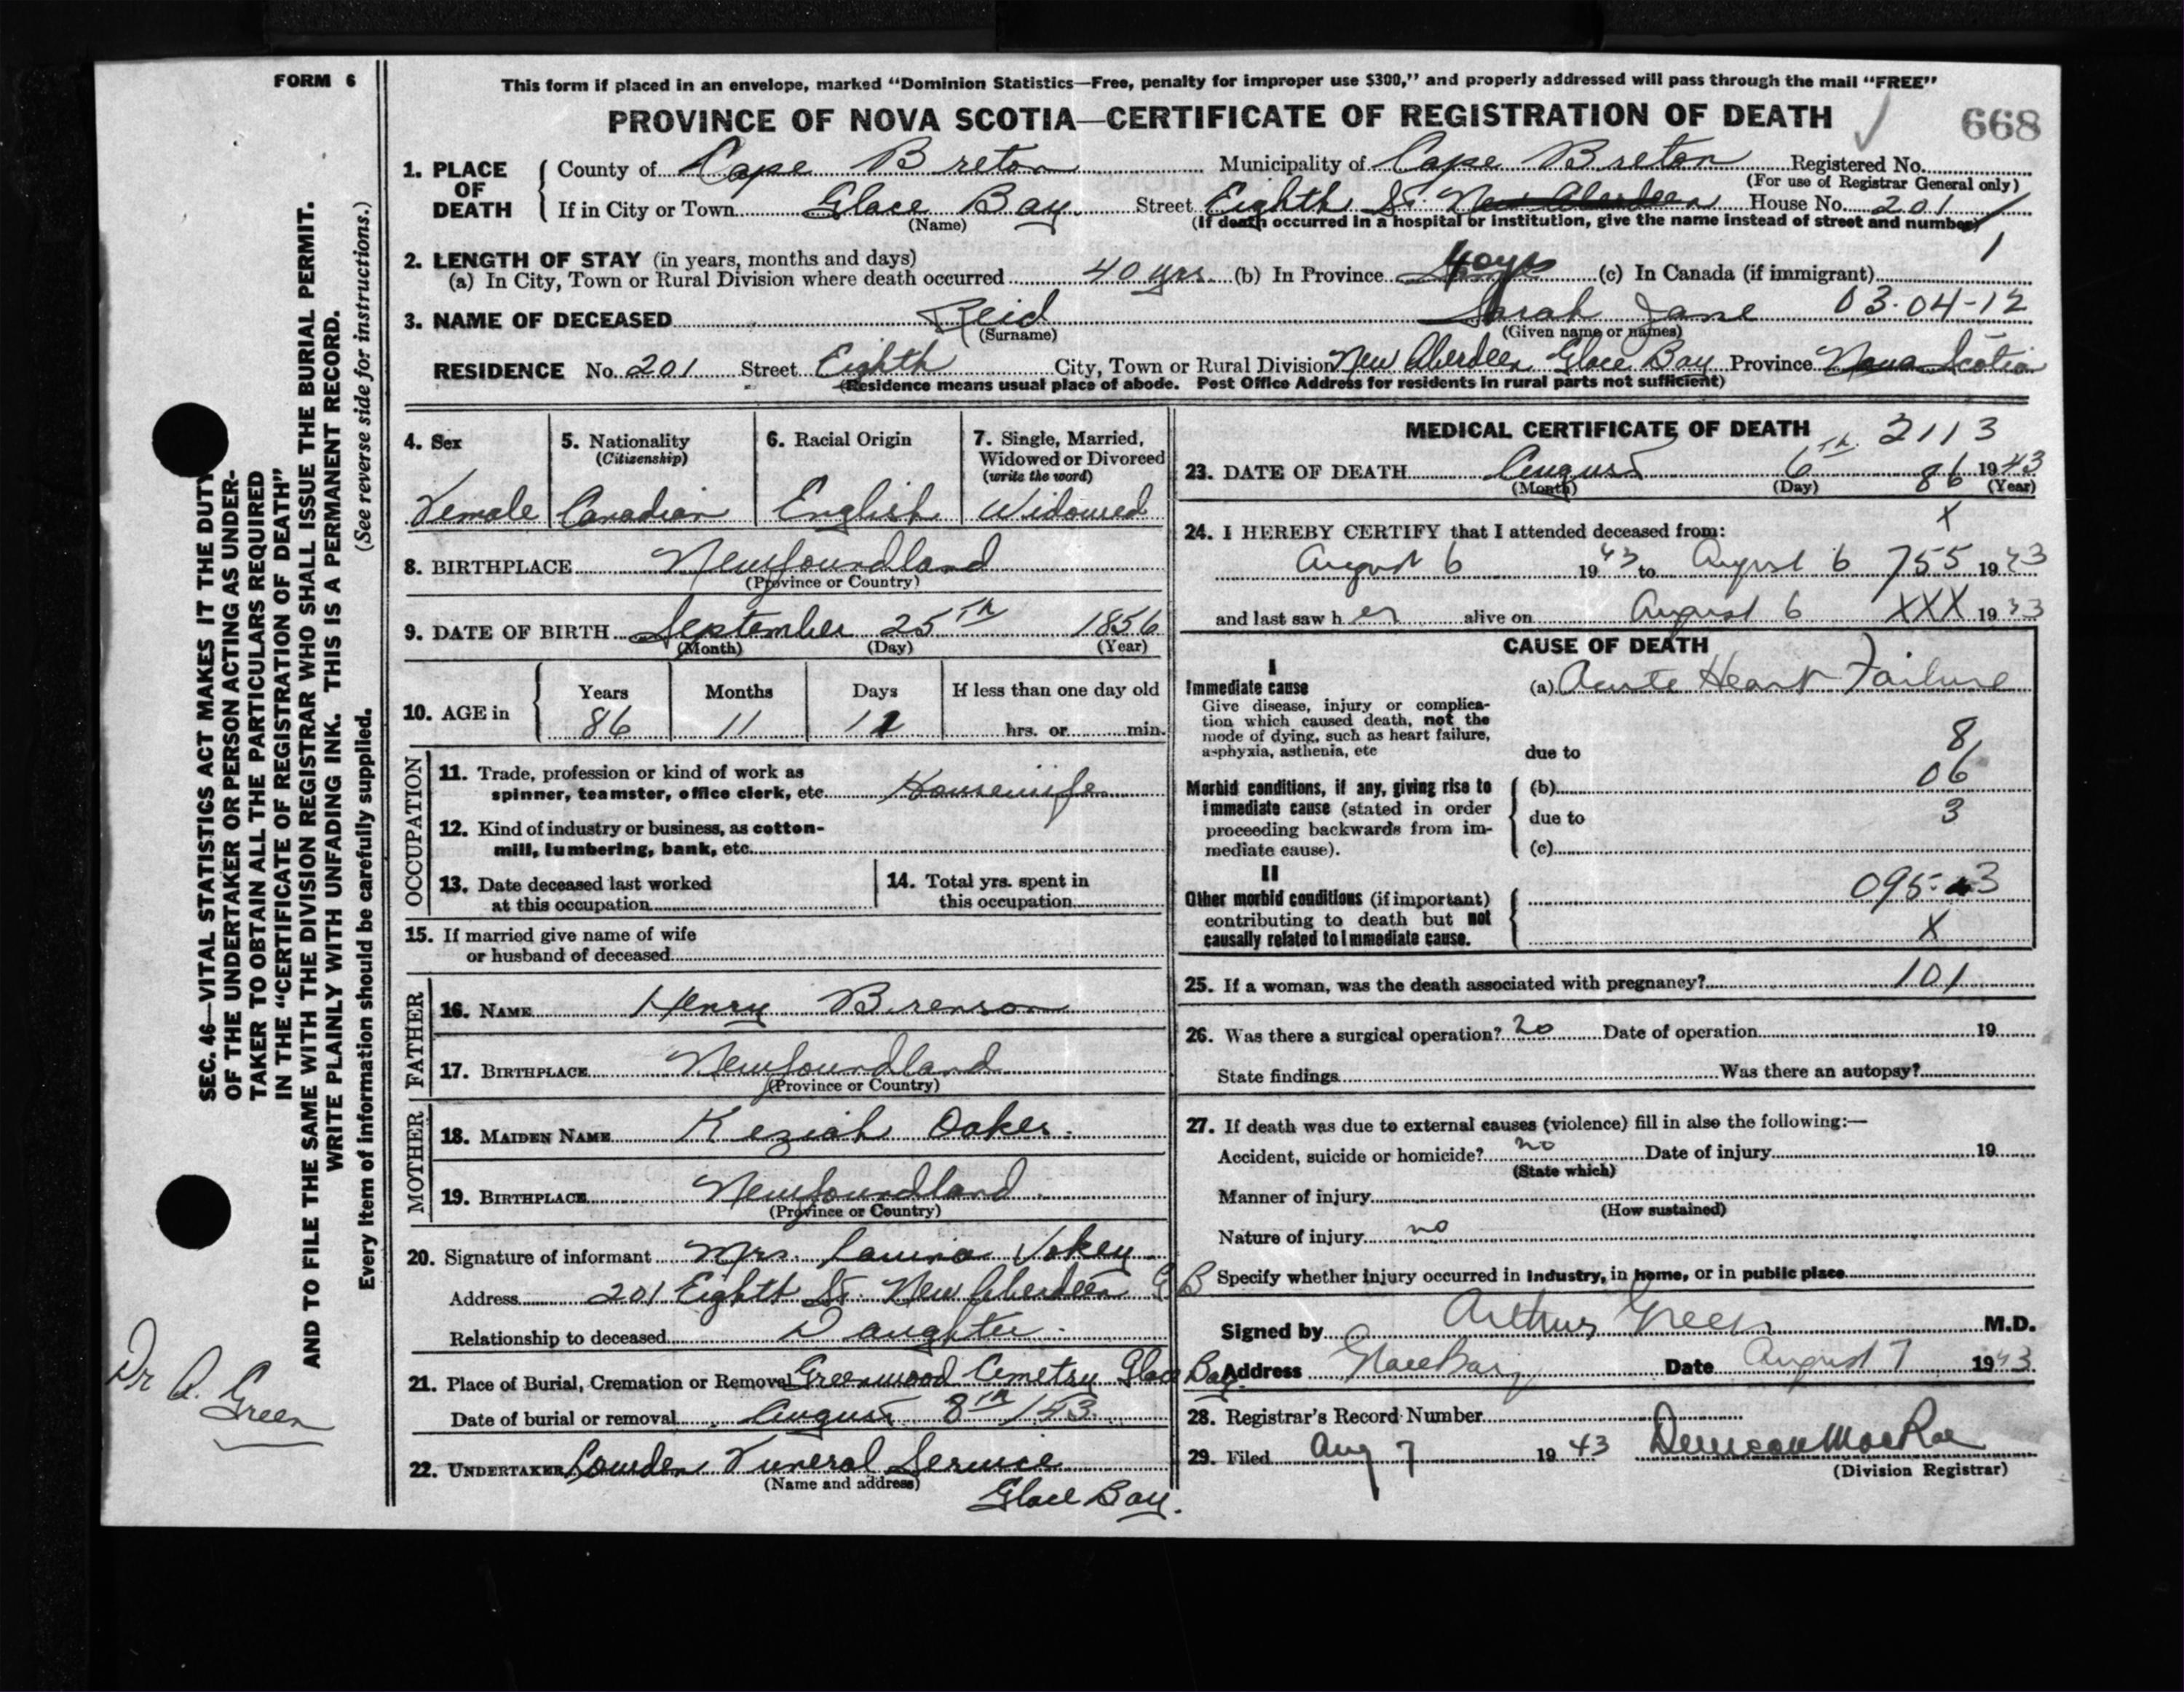 FORM 6
This form if placed in an envelope, marked "Dominion Statistics—Free, penalty for improper use $300," and properly addressed will pass through the mail "FREE"
PROVINCE OF NOVA SCOTIA—CERTIFICATE OF REGISTRATION OF DEATH
668
1. PLACE OF DEATH
County of Cape Breton Municipality of Cape Breton Registered No.
(For use of Registrar General only)
If in City or Town Glace Bay. Street Eighth St. New Aberdeen House No. 201
(Name) (If death occurred in a hospital or institution, give the name instead of street and number)
1
2. LENGTH OF STAY (in years, months and days)
(a) In City, Town or Rural Division where death occurred 40 yrs. (b) In Province 40 yrs (c) In Canada (if immigrant)
3. NAME OF DECEASED Reid Sarah Jane 03-04-12
(Surname) (Given name or names)
RESIDENCE No. 201 Street Eighth City, Town or Rural Division New Aberdeen Glace Bay Province Nova Scotia
(Residence means usual place of abode. Post Office Address for residents in rural parts not sufficient)
4. Sex
Female
5. Nationality
(Citizenship)
Canadian
6. Racial Origin
English
7. Single, Married, Widowed or Divorced
(write the word)
Widowed
8. BIRTHPLACE Newfoundland
(Province or Country)
9. DATE OF BIRTH September 25th 1856
(Month) (Day) (Year)
10. AGE in
Years Months Days If less than one day old
86 11 12 hrs. or min.
OCCUPATION
11. Trade, profession or kind of work as
spinner, teamster, office clerk, etc. Housewife
12. Kind of industry or business, as cotton-
mill, lumbering, bank, etc.
13. Date deceased last worked
at this occupation
14. Total yrs. spent in
this occupation
15. If married give name of wife
or husband of deceased
FATHER
16. NAME Henry Brenson
17. BIRTHPLACE Newfoundland
(Province or Country)
MOTHER
18. MAIDEN NAME Keziah Oakes.
19. BIRTHPLACE Newfoundland
(Province or Country)
20. Signature of informant Mrs. Vokey
Address 201 Eighth St. New Aberdeen G B
Relationship to deceased Daughter.
21. Place of Burial, Cremation or Removal Greenwood Cemetry Glace Bay.
Date of burial or removal August 8th /43.
22. UNDERTAKER Lowden Funeral Service
(Name and address)
Glace Bay.
MEDICAL CERTIFICATE OF DEATH 2113
23. DATE OF DEATH August 6th 1943
(Month) (Day) 86 (Year)
X
24. I HEREBY CERTIFY that I attended deceased from:
August 6 1943 to August 6 755 1943
and last saw her alive on August 6 XXX 1943
CAUSE OF DEATH
I
Immediate cause
Give disease, injury or complica-
tion which caused death, not the
mode of dying, such as heart failure,
asphyxia, asthenia, etc
(a) Acute Heart Failure
due to
8
06
3
Morbid conditions, if any, giving rise to
immediate cause (stated in order
proceeding backwards from im-
mediate cause).
(b)
due to
(c)
II
Other morbid conditions (if important)
contributing to death but not
causally related to immediate cause.
X
25. If a woman, was the death associated with pregnancy? 101
26. Was there a surgical operation? no Date of operation 19
State findings Was there an autopsy?
27. If death was due to external causes (violence) fill in also the following:—
Accident, suicide or homicide? no Date of injury 19
(State which)
Manner of injury
(How sustained)
Nature of injury no
Specify whether injury occurred in industry, in home, or in public place
Signed by Arthur Green M.D.
Address Glace Bay Date August 7 1943
28. Registrar's Record Number
29. Filed Aug 7 1943 Duncan MacRae
(Division Registrar)
SEC. 46—VITAL STATISTICS ACT MAKES IT THE DUTY
OF THE UNDERTAKER OR PERSON ACTING AS UNDER-
TAKER TO OBTAIN ALL THE PARTICULARS REQUIRED
IN THE "CERTIFICATE OF REGISTRATION OF DEATH"
AND TO FILE THE SAME WITH THE DIVISION REGISTRAR WHO SHALL ISSUE THE BURIAL PERMIT.
WRITE PLAINLY WITH UNFADING INK. THIS IS A PERMANENT RECORD.
Every item of information should be carefully supplied. (See reverse side for instructions.)
Dr A. Green